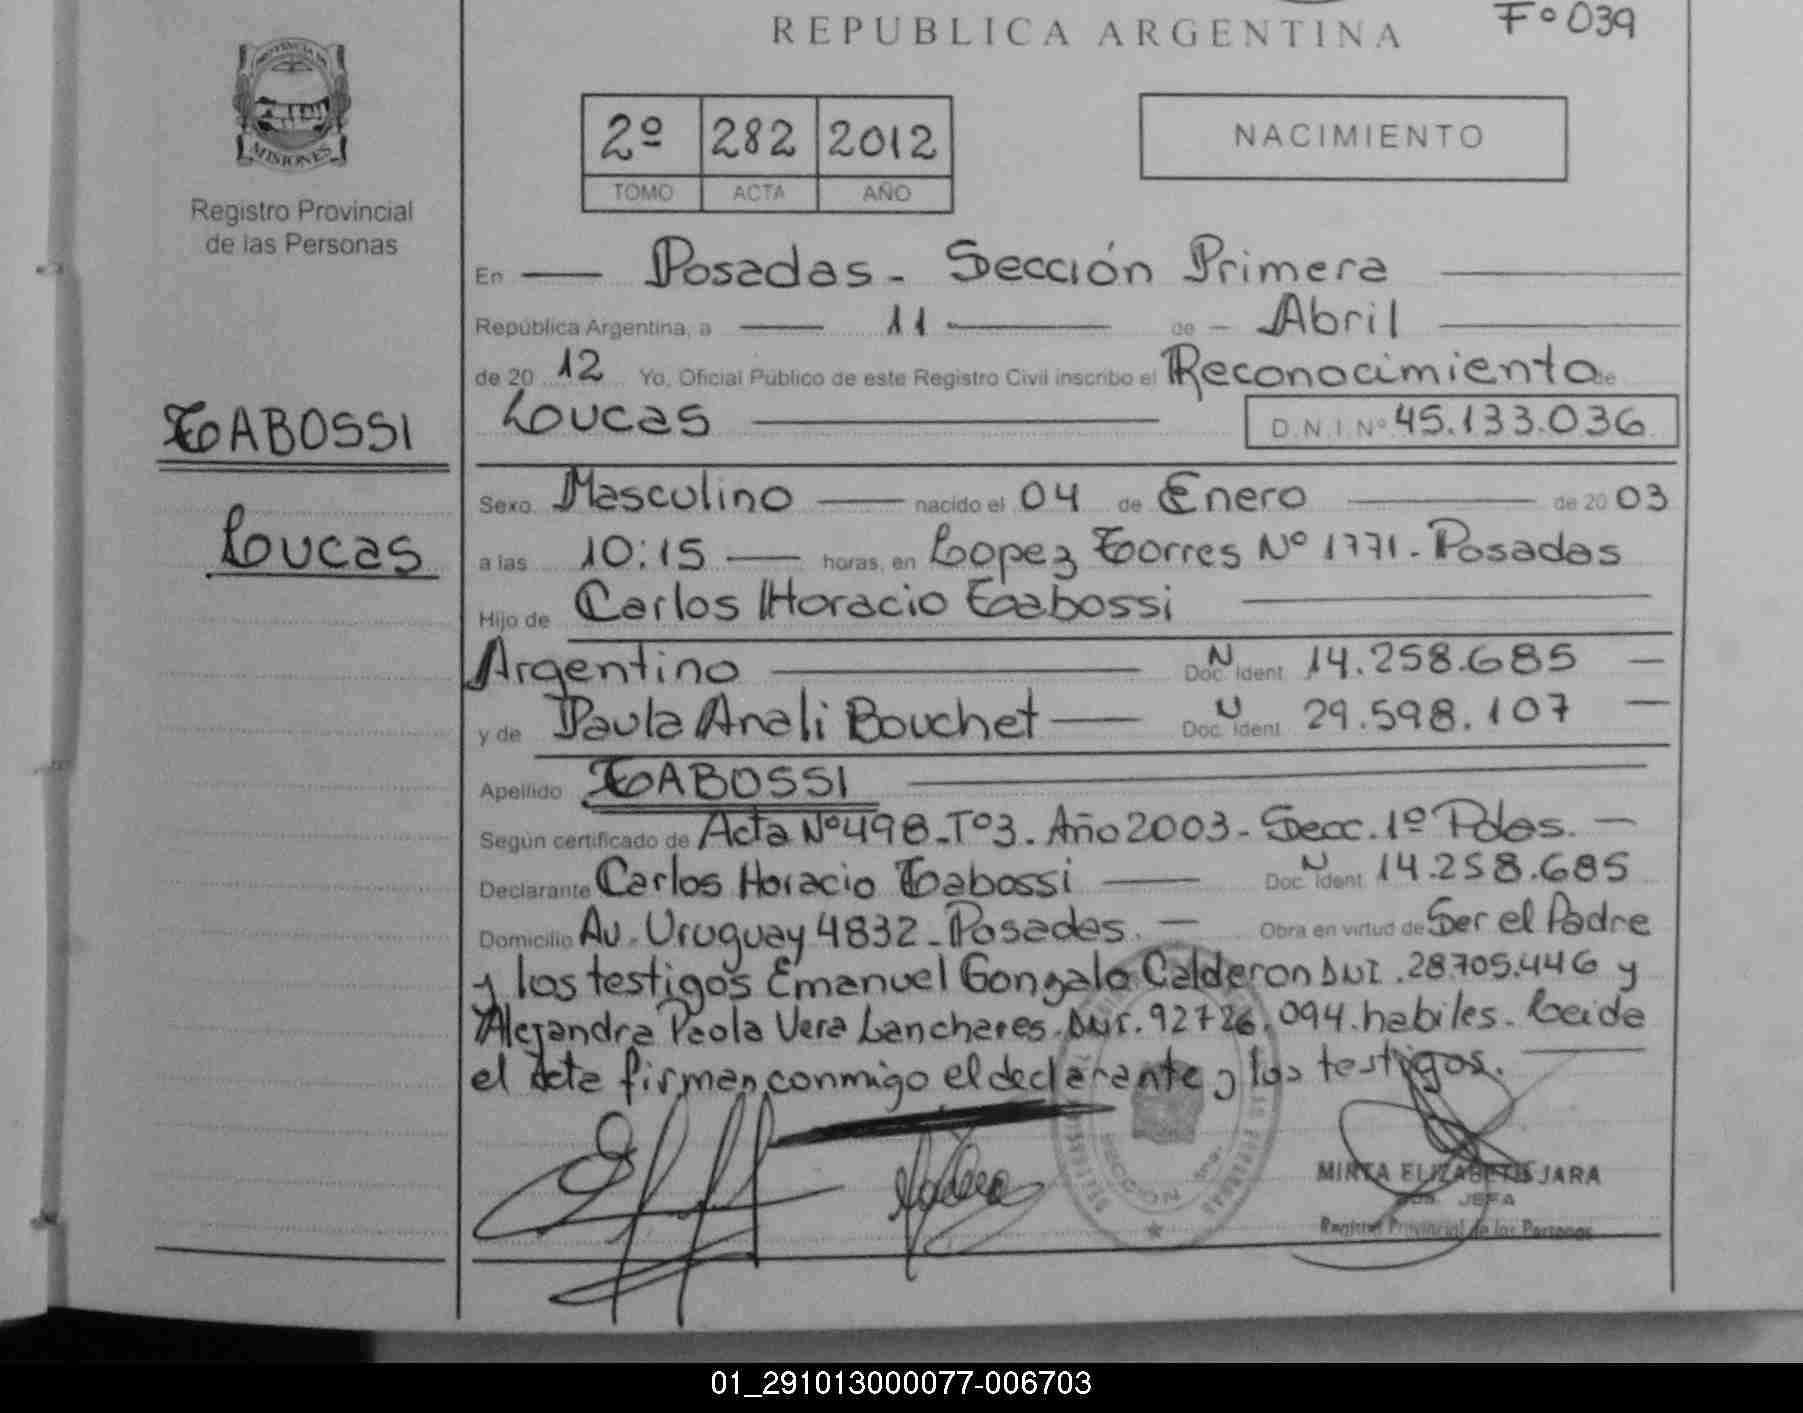 REPUBLICA ARGENTINA
Fº 039
PROVINCIA DE
MISIONES
Registro Provincial
de las Personas
2º 282 2012
TOMO ACTA AÑO
NACIMIENTO
En Posadas - Sección Primera
República Argentina, a 11 de Abril
de 20 12 Yo, Oficial Público de este Registro Civil inscribo el Reconocimiento de
Loucas D.N.I. Nº 45.133.036
TABOSSI
Loucas
Sexo Masculino nacido el 04 de Enero de 20 03
a las 10:15 horas, en Lopez Torres Nº 1771 - Posadas
Hijo de Carlos Horacio Tabossi
Argentino Doc. Ident. N 14.258.685
y de Paula Anali Bouchet Doc. Ident. U 29.598.107
Apellido TABOSSI
Según certificado de Acta Nº 498 - Tº 3 - Año 2003 - Secc. 1º Pdas.
Declarante Carlos Horacio Tabossi Doc. Ident. N 14.258.685
Domicilio Av. Uruguay 4832 - Posadas. Obra en virtud de Ser el Padre
y los testigos Emanuel Gonzalo Calderon DNI. 28705.446 y
Alejandra Paola Vera Lanchares. DNI. 92726.094. habiles. Leida
el acta firman conmigo el declarante y los testigos.
MIRTA ELIZABETH JARA
JEFA
Registro Provincial de las Personas
01_291013000077-006703